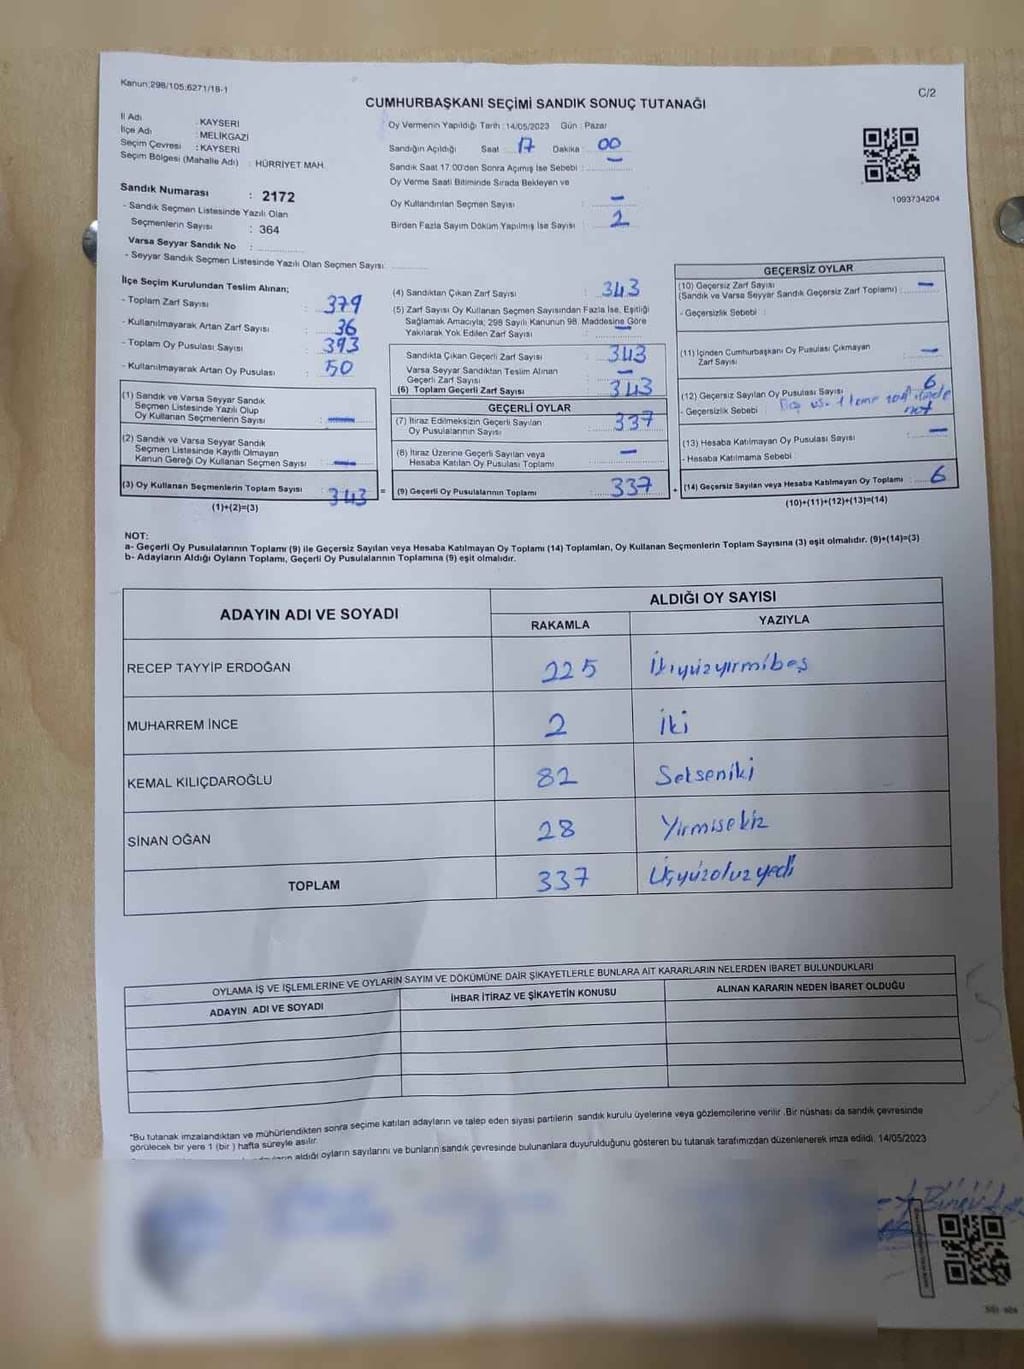 Kanun:298/105;6271/18-1
C/2
CUMHURBAŞKANI SEÇİMİ SANDIK SONUÇ TUTANAĞI
İl Adı : KAYSERİ
İlçe Adı : MELİKGAZİ
Seçim Çevresi : KAYSERİ
Seçim Bölgesi (Mahalle Adı) : HÜRRİYET MAH.
Oy Vermenin Yapıldığı Tarih : 14/05/2023 Gün : Pazar
Sandığın Açıldığı Saat 17 Dakika 00
Sandık Saat 17:00'den Sonra Açılmış İse Sebebi : –
Oy Verme Saati Bitiminde Sırada Bekleyen ve
Oy Kullandırılan Seçmen Sayısı : –
Birden Fazla Sayım Döküm Yapılmış İse Sayısı : 2
1093734204
Sandık Numarası : 2172
- Sandık Seçmen Listesinde Yazılı Olan
Seçmenlerin Sayısı : 364
Varsa Seyyar Sandık No :
- Seyyar Sandık Seçmen Listesinde Yazılı Olan Seçmen Sayısı
İlçe Seçim Kurulundan Teslim Alınan;
- Toplam Zarf Sayısı : 379
- Kullanılmayarak Artan Zarf Sayısı : 36
- Toplam Oy Pusulası Sayısı : 393
- Kullanılmayarak Artan Oy Pusulası : 50
(1) Sandık ve Varsa Seyyar Sandık
Seçmen Listesinde Yazılı Olup
Oy Kullanan Seçmenlerin Sayısı : –
(2) Sandık ve Varsa Seyyar Sandık
Seçmen Listesinde Kayıtlı Olmayan
Kanun Gereği Oy Kullanan Seçmen Sayısı –
(3) Oy Kullanan Seçmenlerin Toplam Sayısı 343 =
(1)+(2)=(3)
(4) Sandıktan Çıkan Zarf Sayısı : 343
(5) Zarf Sayısı Oy Kullanan Seçmen Sayısından Fazla İse, Eşitliği
Sağlamak Amacıyla; 298 Sayılı Kanunun 98. Maddesine Göre
Yakılarak Yok Edilen Zarf Sayısı –
Sandıkta Çıkan Geçerli Zarf Sayısı : 343
Varsa Seyyar Sandıktan Teslim Alınan
Geçerli Zarf Sayısı –
(6) Toplam Geçerli Zarf Sayısı : 343
GEÇERLİ OYLAR
(7) İtiraz Edilmeksizin Geçerli Sayılan
Oy Pusulalarının Sayısı : 337
(8) İtiraz Üzerine Geçerli Sayılan veya
Hesaba Katılan Oy Pusulası Toplamı –
(9) Geçerli Oy Pusulalarının Toplamı 337 +
GEÇERSİZ OYLAR
(10) Geçersiz Zarf Sayısı
(Sandık ve Varsa Seyyar Sandık Geçersiz Zarf Toplamı) : –
- Geçersizlik Sebebi :
(11) İçinden Cumhurbaşkanı Oy Pusulası Çıkmayan
Zarf Sayısı –
(12) Geçersiz Sayılan Oy Pusulası Sayısı 6
- Geçersizlik Sebebi :
(13) Hesaba Katılmayan Oy Pusulası Sayısı –
- Hesaba Katılmama Sebebi
(14) Geçersiz Sayılan veya Hesaba Katılmayan Oy Toplamı 6
(10)+(11)+(12)+(13)=(14)
NOT:
a- Geçerli Oy Pusulalarının Toplamı (9) ile Geçersiz Sayılan veya Hesaba Katılmayan Oy Toplamı (14) Toplamları, Oy Kullanan Seçmenlerin Toplam Sayısına (3) eşit olmalıdır. (9)+(14)=(3)
b- Adayların Aldığı Oyların Toplamı, Geçerli Oy Pusulalarının Toplamına (9) eşit olmalıdır.
ADAYIN ADI VE SOYADI
ALDIĞI OY SAYISI
RAKAMLA YAZIYLA
RECEP TAYYİP ERDOĞAN 225 İkiyüzyirmibeş
MUHARREM İNCE 2 İki
KEMAL KILIÇDAROĞLU 82 Sekseniki
SİNAN OĞAN 28 Yirmisekiz
TOPLAM 337 Üçyüzotuzyedi
OYLAMA İŞ VE İŞLEMLERİNE VE OYLARIN SAYIM VE DÖKÜMÜNE DAİR ŞİKAYETLERLE BUNLARA AİT KARARLARIN NELERDEN İBARET BULUNDUKLARI
ADAYIN ADI VE SOYADI
İHBAR İTİRAZ VE ŞİKAYETİN KONUSU
ALINAN KARARIN NEDEN İBARET OLDUĞU
*Bu tutanak imzalandıktan ve mühürlendikten sonra seçime katılan adayların ve talep eden siyasi partilerin sandık kurulu üyelerine veya gözlemcilerine verilir .Bir nüshası da sandık çevresinde
görülecek bir yere 1 (bir ) hafta süreyle asılır.
aldığı oyların sayılarını ve bunların sandık çevresinde bulunanlara duyurulduğunu gösteren bu tutanak tarafımızdan düzenlenerek imza edildi. 14/05/2023